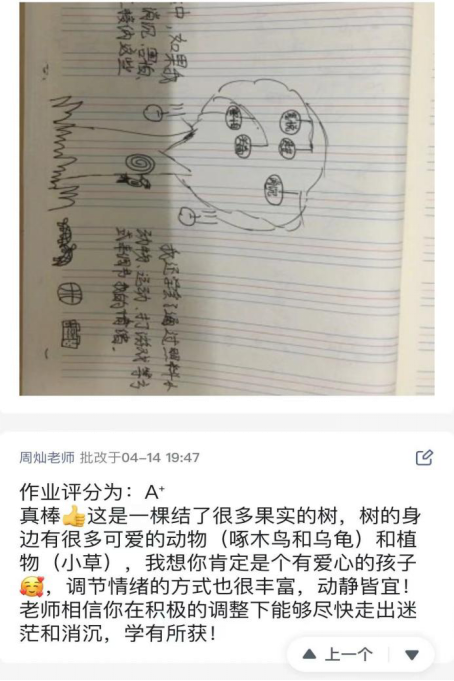 中，如果我
消沉、害怕、
消沉
动物、运动、打游戏等方
式来调节我的情绪.
周灿老师 批改于04-14 19:47
作业评分为：A⁺
真棒👍这是一棵结了很多果实的树，树的身
边有很多可爱的动物（啄木鸟和乌龟）和植
物（小草），我想你肯定是个有爱心的孩子
🥰，调节情绪的方式也很丰富，动静皆宜！
老师相信你在积极的调整下能够尽快走出迷
茫和消沉，学有所获！
上一个